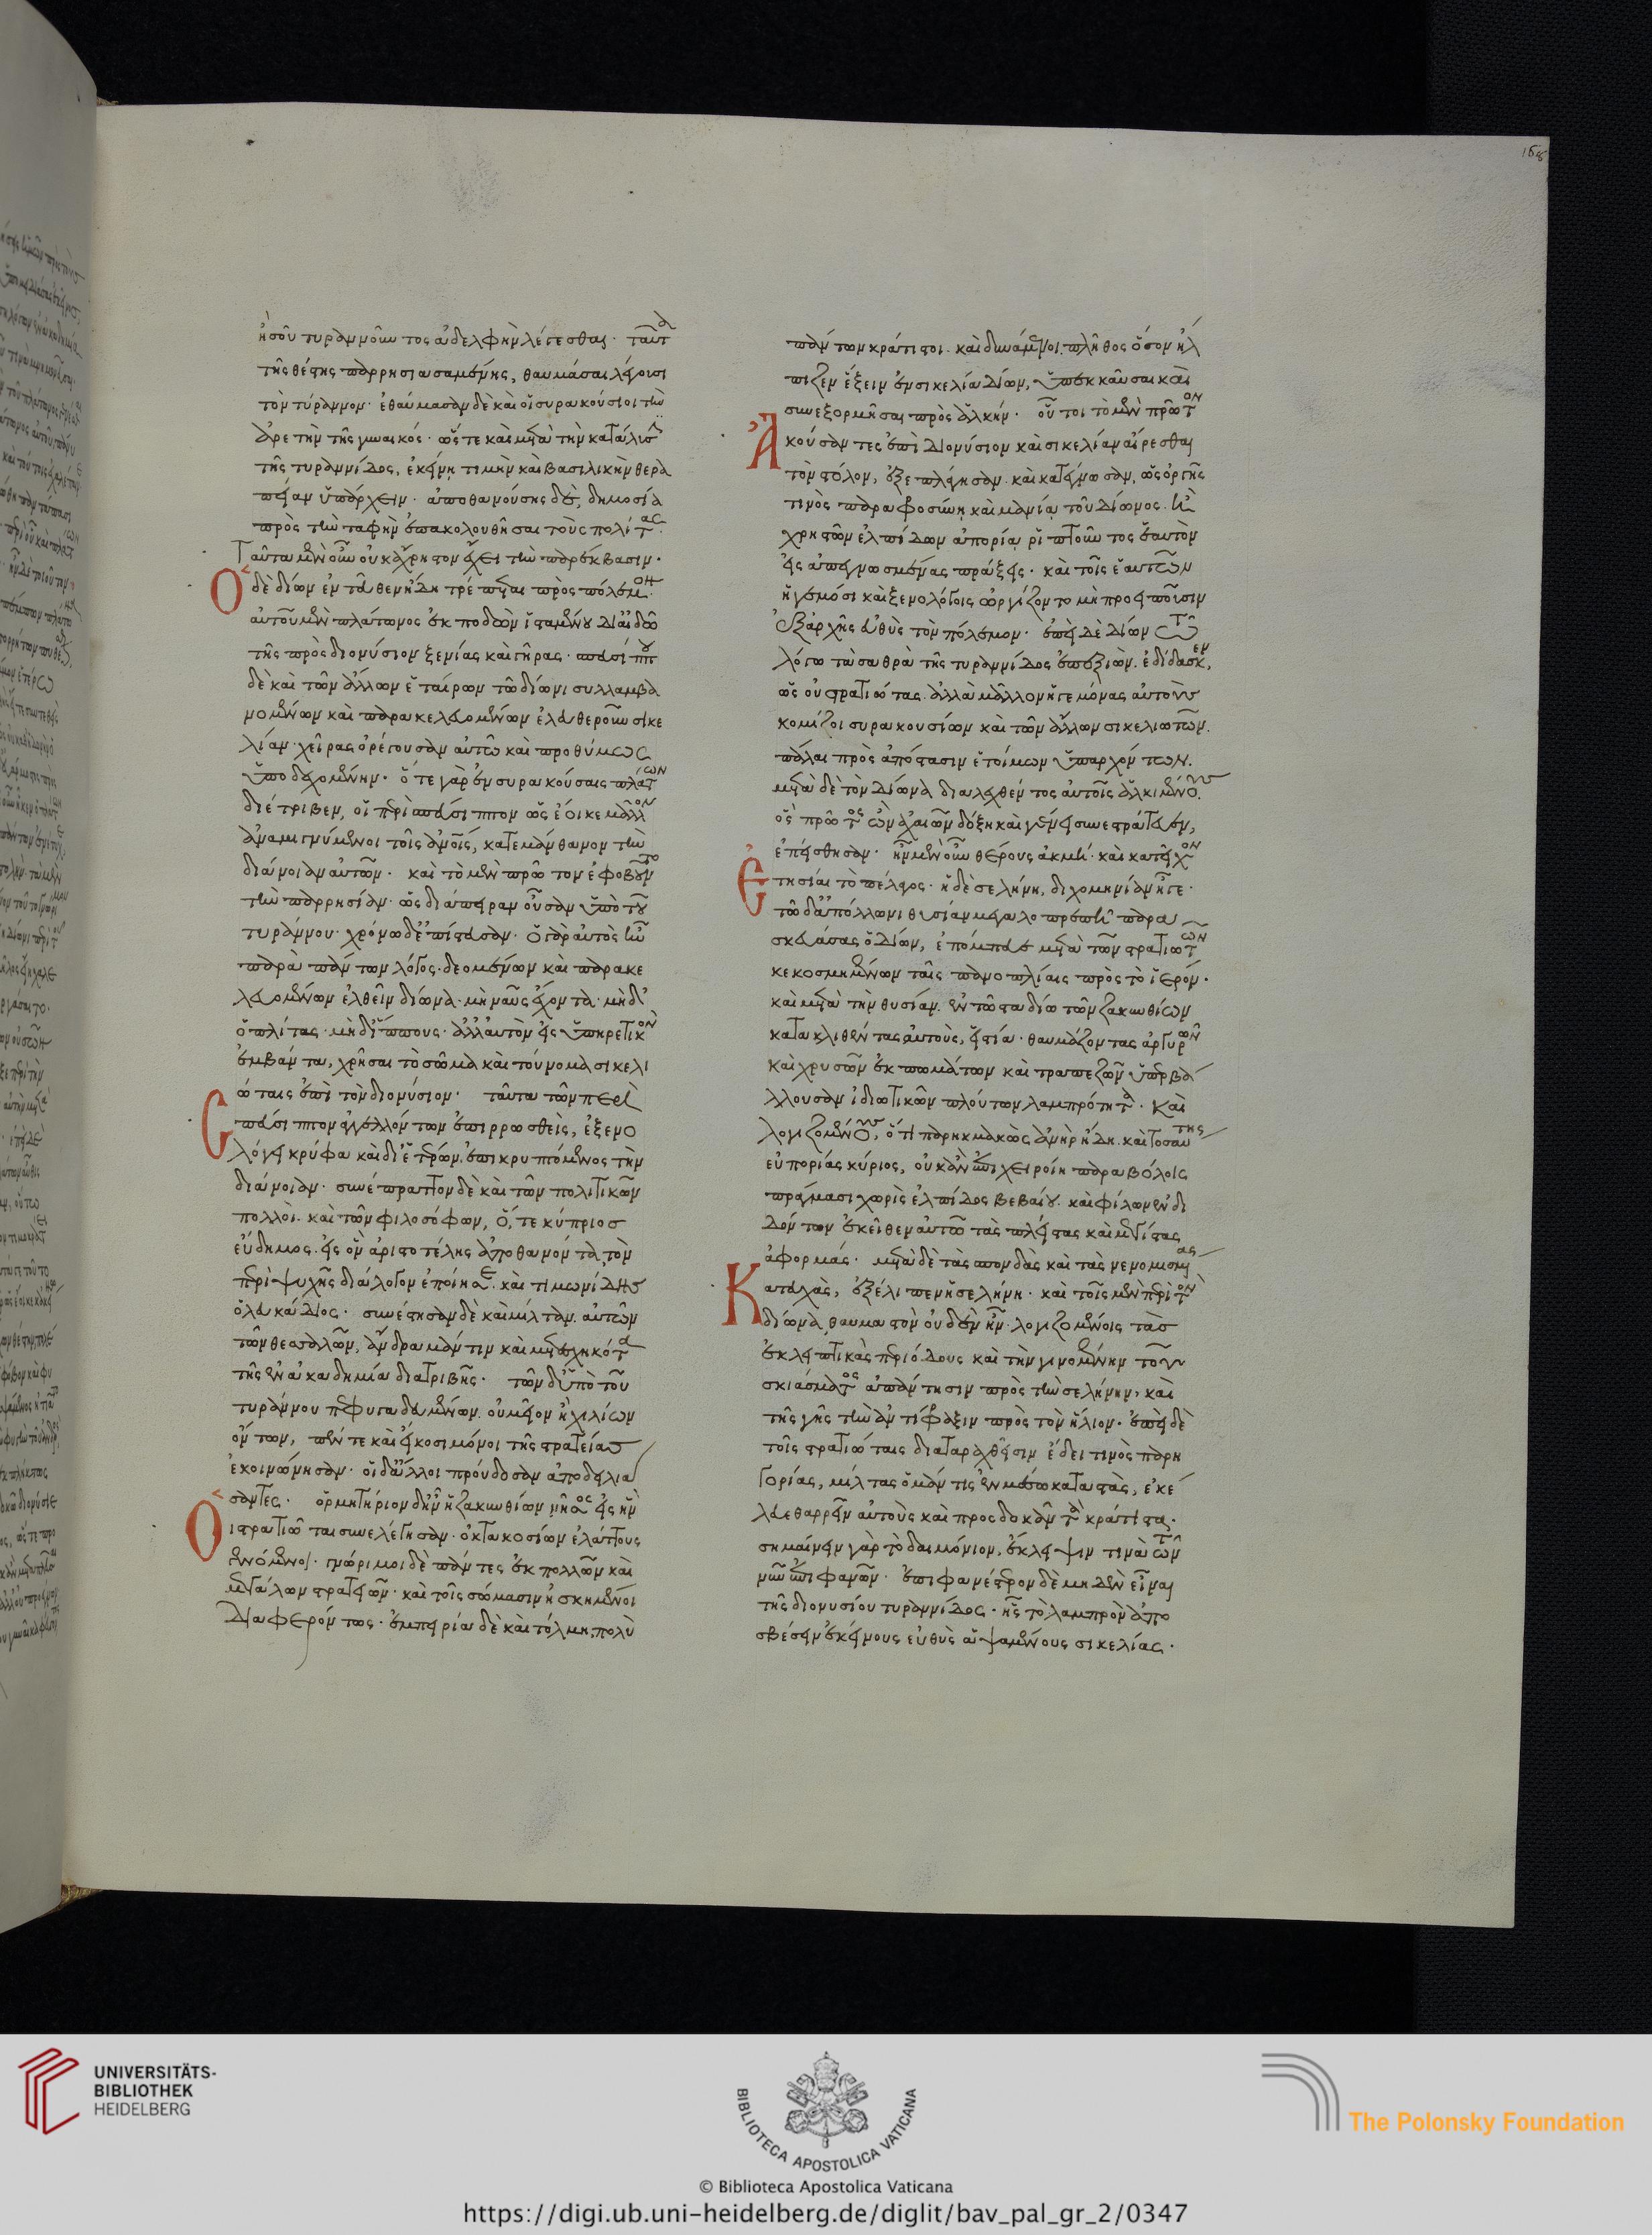 ἢ σοῦ τυραννοῦντος ἀδελφὴν λέγεσθαι· ταῦτα
τῆς θέστης παρρησιασαμένης, θαυμάσαι λέγουσι
τὸν τύραννον· ἐθαύμασαν δὲ καὶ οἱ συρακούσιοι τὴν
ἀρετὴν τῆς γυναικός· ὥστε καὶ μετὰ τὴν κατάλυσιν
τῆς τυραννίδος, ἐκείνῃ τιμὴν καὶ βασιλικὴν θερα
πείαν ὑπάρχειν· ἀποθανούσης δὲ, δημοσίᾳ
πρὸς τὴν ταφὴν ἐπακολουθῆσαι τοὺς πολίτας·
Ταῦτα μὲν οὖν οὐκ ἄχρηστον ἔχει τὴν παρέκβασιν·
Ὁ δὲ δίων ἐντεῦθεν ἤδη τρέπεται πρὸς πόλεμον·
αὐτοῦ μὲν πλάτωνος ἐκποδὼν ἱσταμένου δι' αἰδῶ
τῆς πρὸς διονύσιον ξενίας καὶ γῆρας· σπευσίππου
δὲ καὶ τῶν ἄλλων ἑταίρων τῷ δίωνι συλλαμβα
νομένων καὶ παρακελευομένων ἐλευθεροῦν σικε
λίαν· χεῖρας ὀρέγουσαν αὐτῷ καὶ προθύμως
ὑποδεχομένην· ὅτε γὰρ ἐν συρακούσαις πλάτων
διέτριβεν, οἱ περὶ σπεύσιππον ὡς ἔοικε μᾶλλον
ἀναμιγνύμενοι τοῖς ἀνθρώποις, κατεμάνθανον τὴν
διάνοιαν αὐτῶν· καὶ τὸ μὲν πρῶτον ἐφοβοῦντο
τὴν παρρησίαν· ὡς διάπειραν οὖσαν ὑπὸ τοῦ
τυράννου· χρόνῳ δ' ἐπίστευσαν· ὁ γὰρ αὐτὸς ἦν
παρὰ πάντων λόγος· δεομένων καὶ παρακε
λευομένων ἐλθεῖν δίωνα· μὴ ναῦς ἔχοντα· μὴ δ'
ὁπλίτας· μὴ δ' ἵππους· ἀλλ' αὐτὸν εἰς ὑπηρετικὸν
ἐμβάντα, χρῆσαι τὸ σῶμα καὶ τοὔνομα σικελι
ώταις ἐπὶ τὸν διονύσιον· ταῦτα τῶν περὶ
Σπεύσιππον ἀγγελλόντων ἐπιρρωσθεὶς, ἐξενο
λόγει κρύφα καὶ δι' ἑτέρων· ἐπικρυπτόμενος τὴν
διάνοιαν· συνέπραττον δὲ καὶ τῶν πολιτικῶν
πολλοὶ· καὶ τῶν φιλοσόφων, ὅ, τε κύπριος
εὔδημος· εἰς ὃν ἀριστοτέλης ἀποθανόντα τὸν
περὶ ψυχῆς διάλογον ἐποίησε· καὶ τιμωνίδης
ὁ λευκάδιος· συνέστησαν δὲ καὶ μίλταν αὐτῷ
τῶν θεσσαλῶν, ἄνδρα μάντιν καὶ μετεσχηκότα
τῆς ἐν ἀκαδημίᾳ διατριβῆς· τῶν δ' ὑπὸ τοῦ
τυράννου πεφυγαδευμένων οὐ μεῖον ἢ χιλίων
ὄντων, πέντε καὶ εἴκοσι μόνοι τῆς στρατείας
ἐκοινώνησαν· οἱ δ' ἄλλοι προὔδοσαν ἀποδειλιά
σαντες· ὁρμητήριον δ' ἦν ἡ ζακυνθίων νῆσος εἰς ἣν
Οἱ στρατιῶται συνελέγησαν· ὀκτακοσίων ἐλάττους
γενόμενοι· γνώριμοι δὲ πάντες ἐκ πολλῶν καὶ
μεγάλων στρατειῶν· καὶ τοῖς σώμασιν ἠσκημένοι
διαφερόντως· ἐμπειρίᾳ δὲ καὶ τόλμῃ, πολὺ
πάντων κράτιστοι· καὶ δυνάμενοι πλῆθος ὅσον ἤλ
πιζεν ἕξειν ἐν σικελίᾳ δίων, ὑπεκκαῦσαι καὶ
συνεξορμῆσαι πρὸς ἀλκήν· οὗτοι τὸ μὲν πρῶτον
Ἀκούσαντες ἐπὶ διονύσιον καὶ σικελίαν αἴρεσθαι
τὸν στόλον, ἐξεπλάγησαν· καὶ κατέγνωσαν, ὡς ὀργῆς
τινὸς παραφροσύνῃ καὶ μανίᾳ τοῦ δίωνος· ἢ
χρηστῶν ἐλπίδων ἀπορίᾳ ῥιπτοῦντος ἑαυτὸν
εἰς ἀπεγνωσμένας πράξεις· καὶ τοῖς ἑαυτῶν
ἡγεμόσι καὶ ξενολόγοις ὠργίζοντο μὴ προειποῦσιν
ἐξ ἀρχῆς εὐθὺς τὸν πόλεμον· ἐπεὶ δὲ δίων τῷ
λόγῳ τὰ σαθρὰ τῆς τυραννίδος ἐπεξιὼν ἐδίδασκεν,
ὡς οὐ στρατιώτας ἀλλὰ μᾶλλον ἡγεμόνας αὐτοὺς
κομίζοι συρακουσίων καὶ τῶν ἄλλων σικελιωτῶν
πάλαι πρὸς ἀπόστασιν ἑτοίμων ὑπαρχόντων·
μετὰ δὲ τὸν δίωνα διαλεχθέντος αὐτοῖς ἀλκιμένους
ὃς πρῶτος ὢν ἀχαιῶν δόξῃ καὶ γένει συνεστράτευεν,
ἐπείσθησαν· ἦν μὲν οὖν θέρους ἀκμὴ· καὶ κατεῖχον
Ἐτησίαι τὸ πέλαγος· ἡ δὲ σελήνη, διχομηνίαν ἦγε·
τῷ δ' ἀπόλλωνι θυσίαν μεγαλοπρεπῆ παρα
σκευάσας ὁ δίων, ἐπόμπευσε μετὰ τῶν στρατιωτῶν
κεκοσμημένων ταῖς πανοπλίαις πρὸς τὸ ἱερόν·
καὶ μετὰ τὴν θυσίαν ἐν τῷ σταδίῳ τῶν ζακυνθίων
κατακλιθέντας αὐτοὺς, εἱστία· θαυμάζοντας ἀργυρῶν
καὶ χρυσῶν ἐκπωμάτων καὶ τραπεζῶν ὑπερβάλ
λουσαν ἰδιωτικῶν πλούτων λαμπρότητα· καὶ
λογιζομένους, ὅτι παρηκμακὼς ἀνὴρ ἤδη καὶ τοσαύτης
εὐπορίας κύριος, οὐκ ἂν ἐπιχειροίη παραβόλοις
πράγμασι χωρὶς ἐλπίδος βεβαίου καὶ φίλων ἐνδι
δόντων ἐκεῖθεν αὐτῷ τὰς πλείστας καὶ μεγίστας
ἀφορμάς· μετὰ δὲ τὰς σπονδὰς καὶ τὰς νενομισμένας
Κατευχὰς, ἐξέλιπεν ἡ σελήνη· καὶ τοῖς μὲν περὶ τὸν
δίωνα θαυμαστὸν οὐδὲν ἦν λογιζομένοις τὰς
ἐκλειπτικὰς περιόδους καὶ τὴν γινομένην τοῦ
σκιάσματος ἀπάντησιν πρὸς τὴν σελήνην, καὶ
τῆς γῆς τὴν ἀντίφραξιν πρὸς τὸν ἥλιον· ἐπεὶ δὲ
τοῖς στρατιώταις διαταραχθεῖσιν ἔδει τινὸς παρη
γορίας, μίλτας ὁ μάντις ἐν μέσῳ καταστὰς, ἐκέ
λευε θαρρεῖν αὐτοὺς καὶ προσδοκᾶν τὰ κράτιστα·
σημαίνειν γὰρ τὸ δαιμόνιον, ἔκλειψιν τινὰ τῶν
νῦν ἐπιφανῶν· ἐπιφανέστερον δὲ μηδὲν εἶναι
τῆς διονυσίου τυραννίδος· ἧς τὸ λαμπρὸν ἀπο
σβέσειν ἐκείνους εὐθὺς ἁψαμένους σικελίας·
UNIVERSITÄTS-
BIBLIOTHEK
HEIDELBERG
BIBLIOTECA APOSTOLICA VATICANA
The Polonsky Foundation
© Biblioteca Apostolica Vaticana
https://digi.ub.uni-heidelberg.de/diglit/bav_pal_gr_2/0347